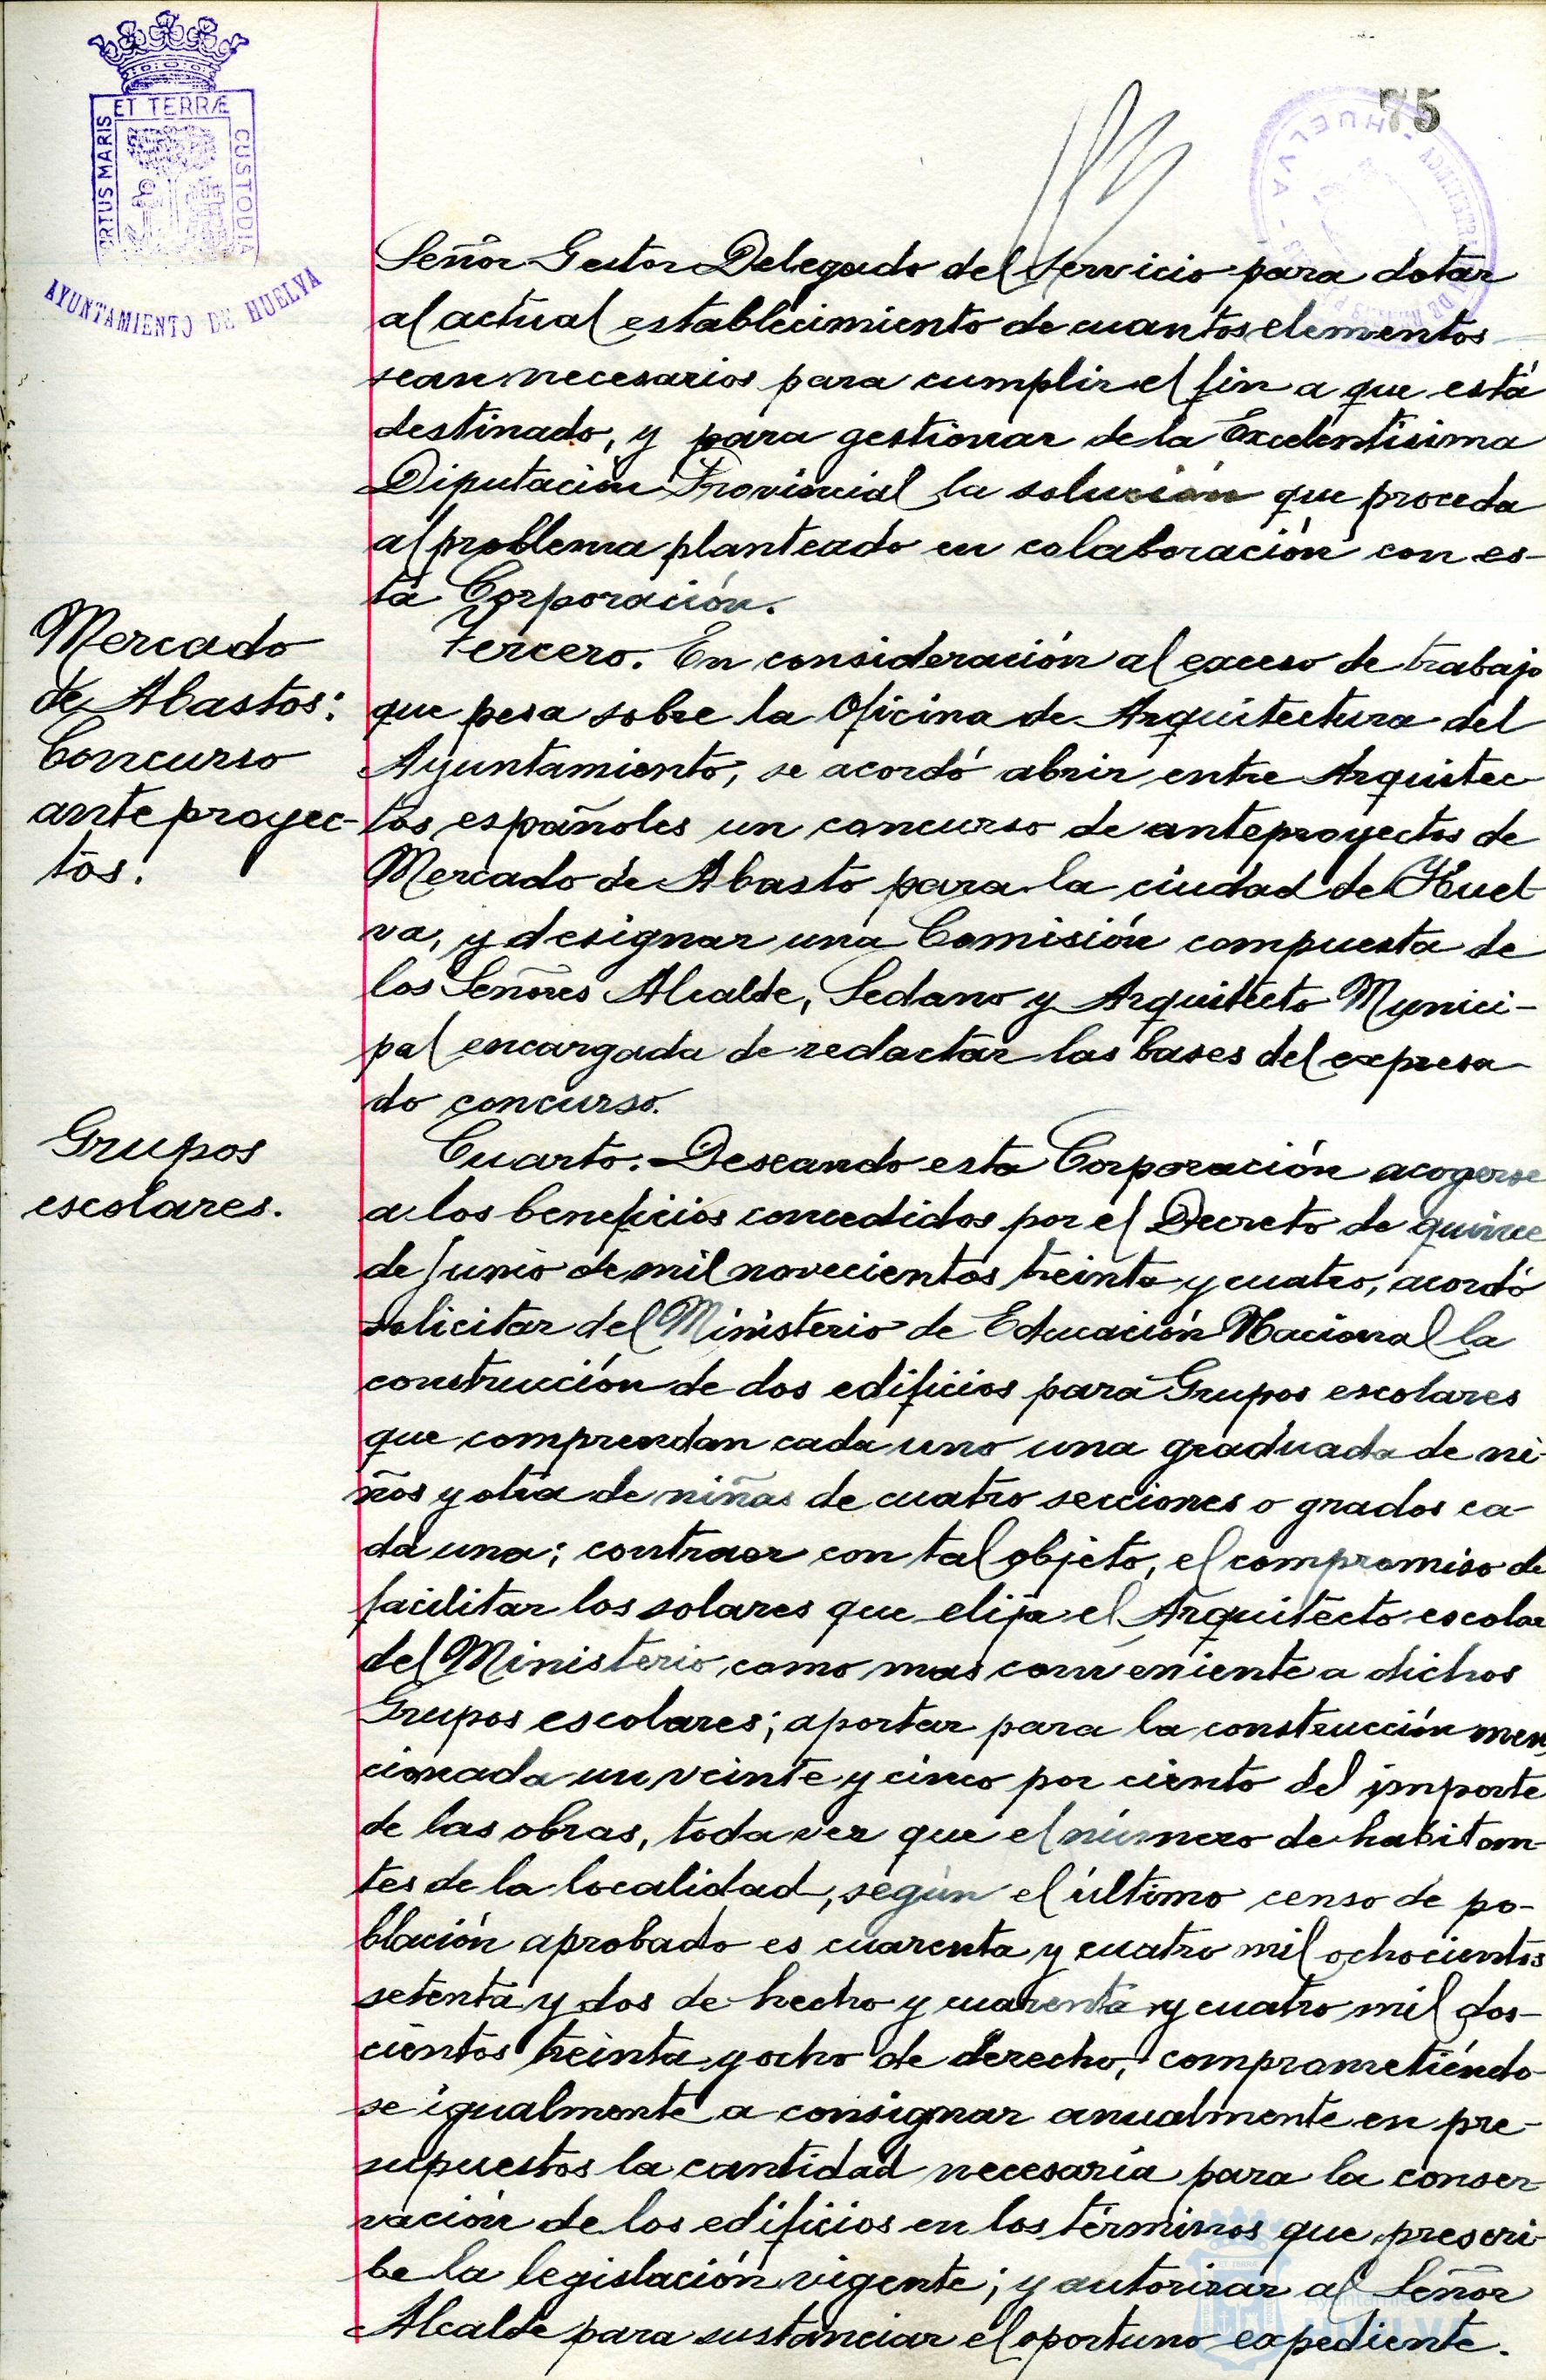 ET TERRÆ
PORTUS MARIS
CUSTODIA
AYUNTAMIENTO DE HUELVA
75
HUELVA
Señor Gestor Delegado del Servicio para dotar
al actual establecimiento de cuantos elementos
sean necesarios para cumplir el fin a que está
destinado, y para gestionar de la Excelentisima
Diputación Provincial la solución que proceda
al problema planteado en colaboración con es-
ta Corporación.
Mercado
de Abastos:
Concurso
anteproyec-
tos.
Tercero. En consideración al exceso de trabajo
que pesa sobre la Oficina de Arquitectura del
Ayuntamiento, se acordó abrir entre Arquitec
tos españoles un concurso de anteproyectos de
Mercado de Abasto para la ciudad de Huel-
va, y designar una Comisión compuesta de
los Señores Alcalde, Sedano y Arquitecto Munici-
pal encargada de redactar las bases del expresa-
do concurso.
Grupos
escolares.
Cuarto. Deseando esta Corporación acogerse
a los beneficios concedidos por el Decreto de quince
de Junio de mil novecientos treinta y cuatro, acordó
solicitar del Ministerio de Educación Nacional la
construcción de dos edificios para Grupos escolares
que comprendan cada uno una graduada de ni-
ños y otra de niñas de cuatro secciones o grados ca-
da una; contraer con tal objeto, el compromiso de
facilitar los solares que elija el Arquitecto escolar
del Ministerio como mas conveniente a dichos
Grupos escolares; aportar para la construcción men
cionada un veinte y cinco por ciento del importe
de las obras, toda vez que el número de habitan-
tes de la localidad, según el último censo de po-
blación aprobado es cuarenta y cuatro mil ochocientos
setenta y dos de hecho y cuarenta y cuatro mil dos-
cientos treinta y ocho de derecho, comprometiéndo-
se igualmente a consignar anualmente en pre-
supuestos la cantidad necesaria para la conser-
vación de los edificios en los términos que prescri-
be la legislación vigente; y autorizar al Señor
Alcalde para sustanciar el oportuno expediente.
Ayuntamiento
HUELVA